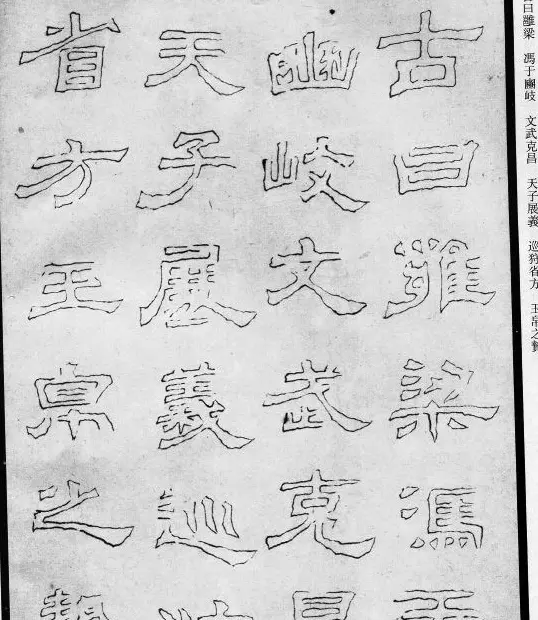 古曰雝梁 馮于豳岐 文武克昌 天子展義 巡狩省方 玉帛之贄
古曰雝梁馮于
豳岐文武克昌
天子展義巡狩
省方玉帛之贄